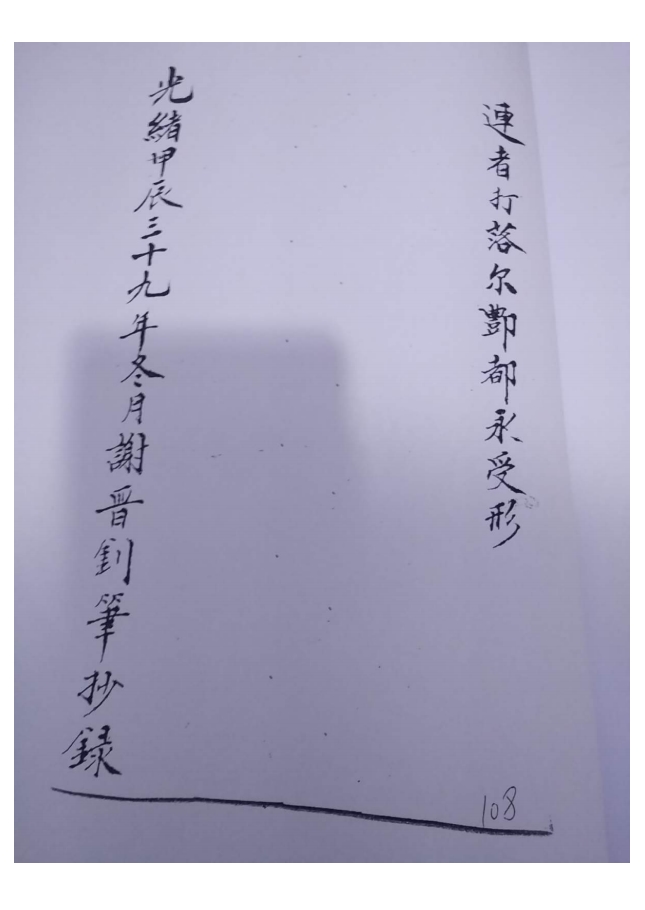 連者打落尔酆都永受形
光緒甲辰三十九年冬月謝晋釗筆抄錄
108